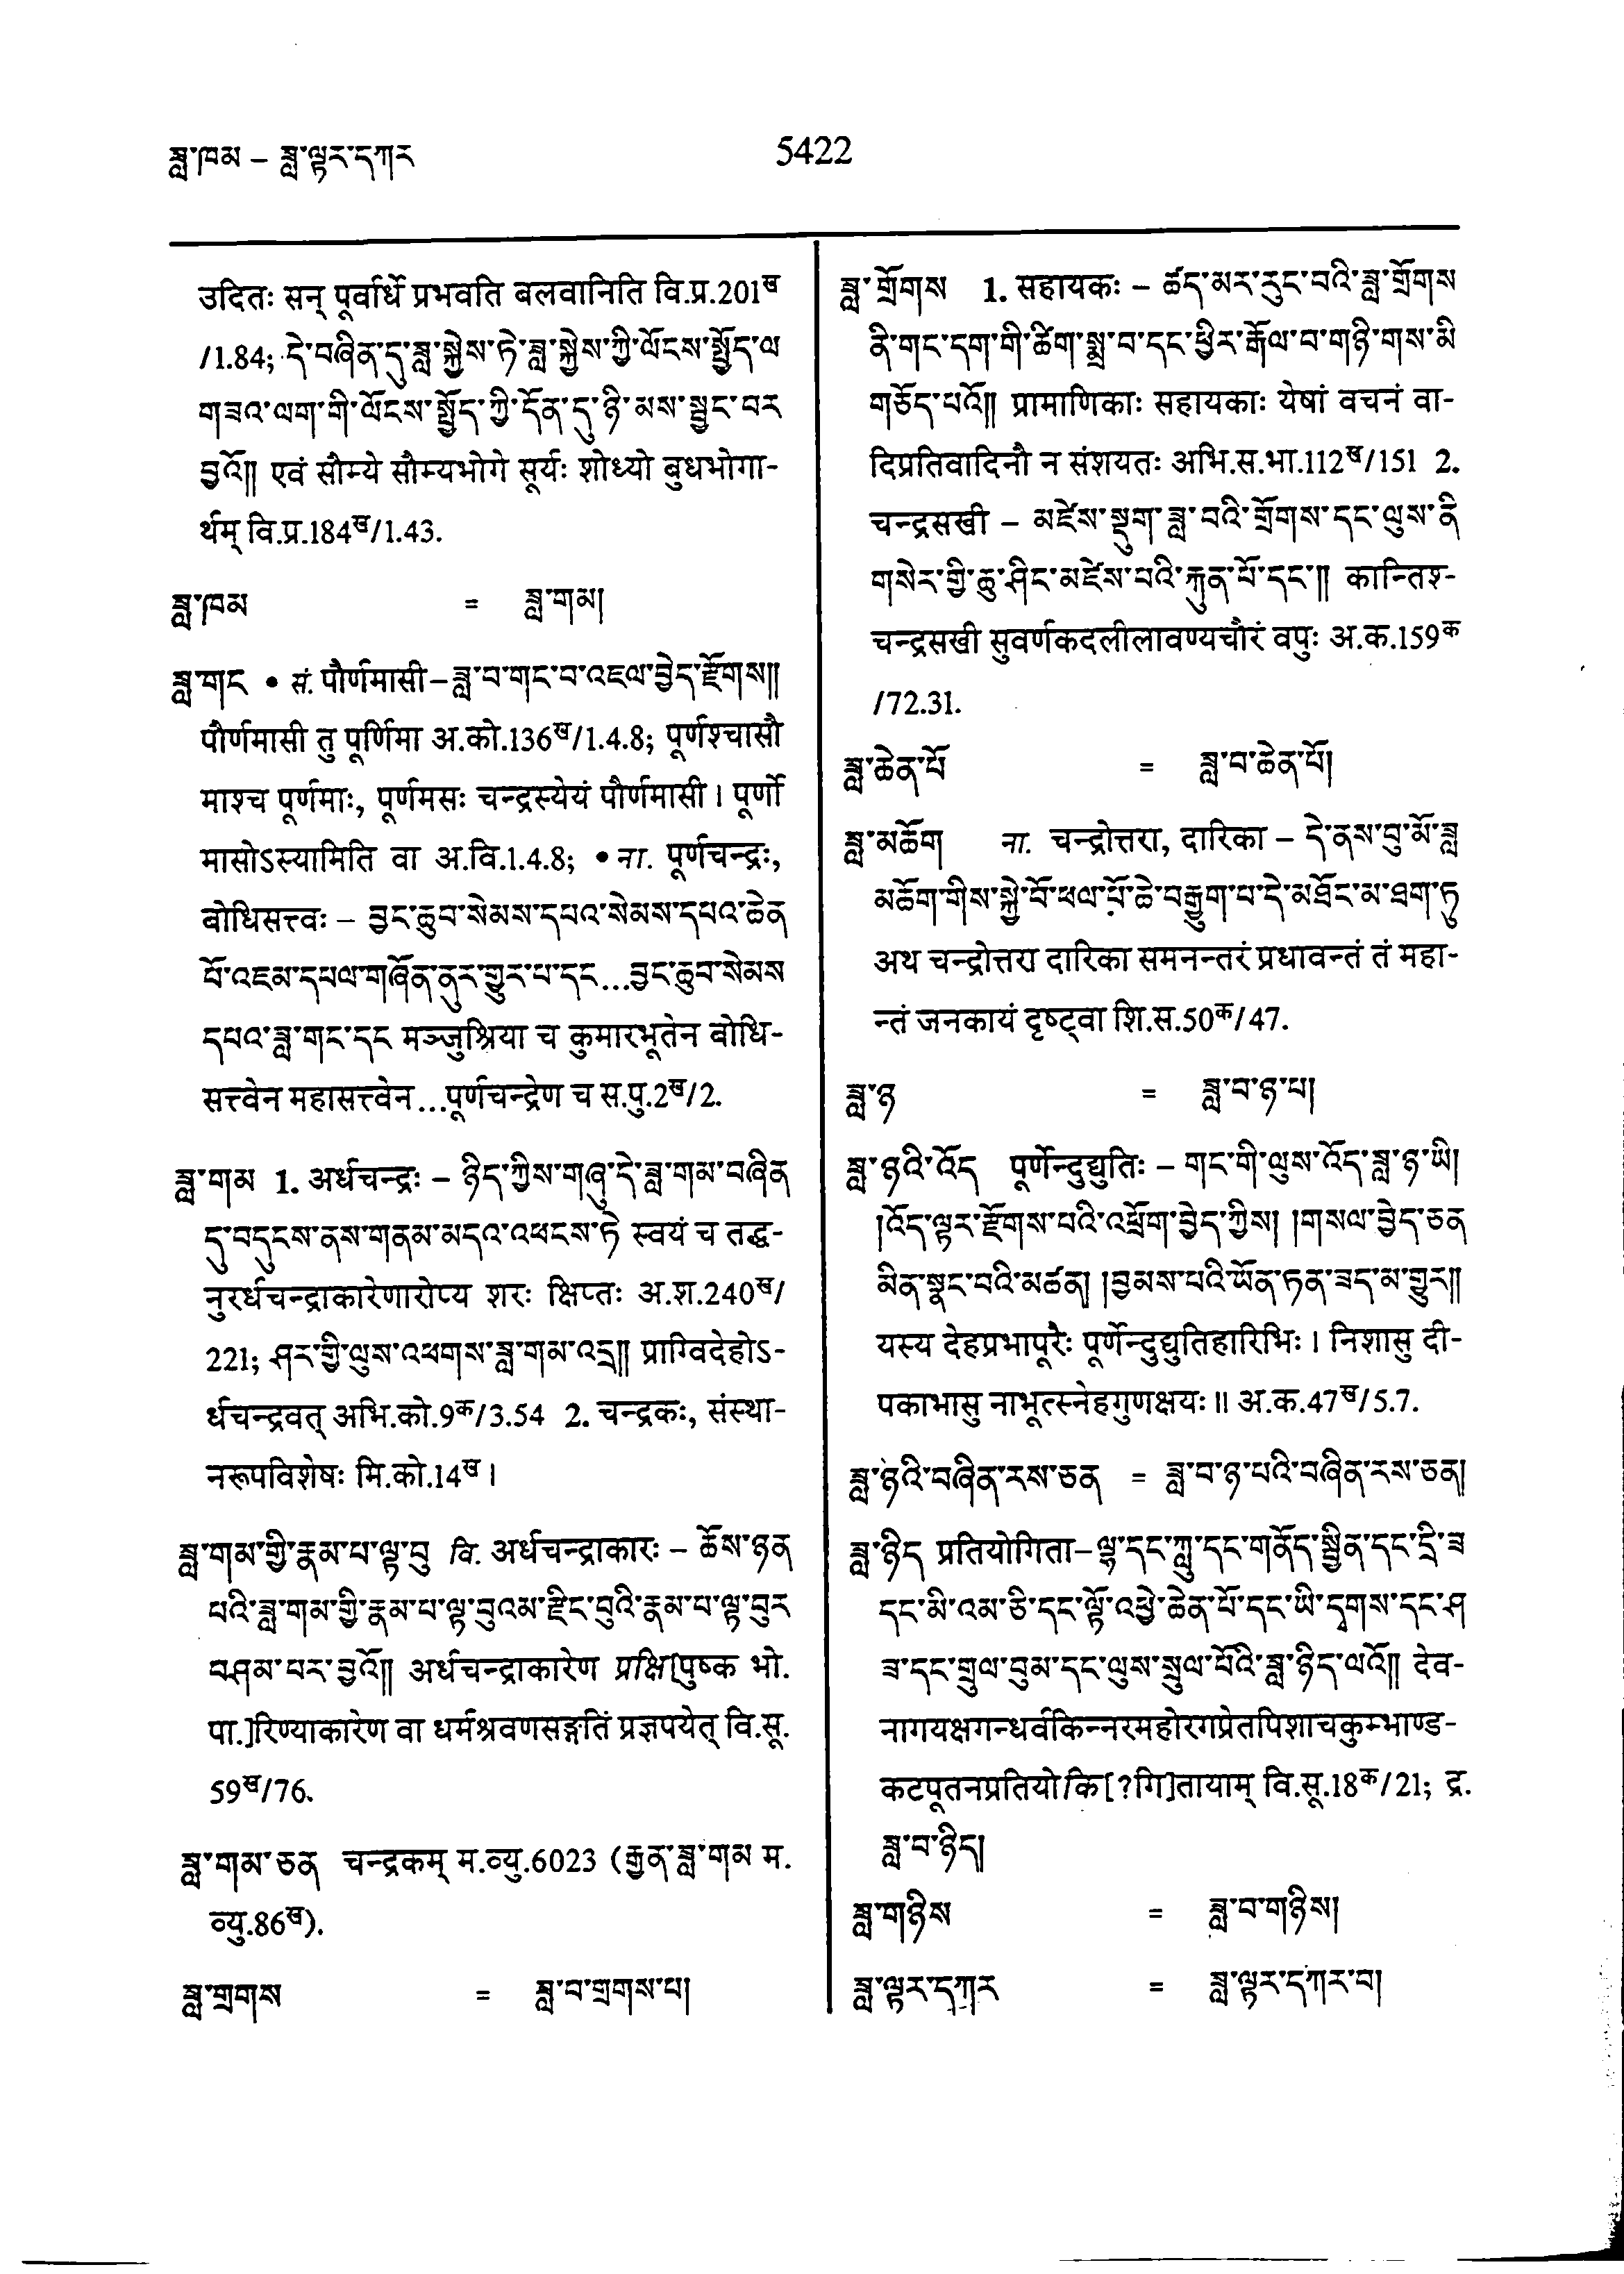 ཟླ་ཁམ – ཟླ་ལྟར་དཀར
5422
उदितः सन् पूर्वार्धे प्रभवति बलवानिति वि.प्र.201ख
/1.84; དེ་བཞིན་དུ་ཟླ་སྐྱེས་ཏེ་ཟླ་སྐྱེས་ཀྱི་ལོངས་སྤྱོད་ལ
གཟའ་ལག་གི་ལོངས་སྤྱོད་ཀྱི་དོན་དུ་ཉི་མས་སྦྱང་བར
བྱའོ།། एवं सौम्ये सौम्यभोगे सूर्यः शोध्यो बुधभोगा-
र्थम् वि.प्र.184ख/1.43.
ཟླ་ཁམ = ཟླ་གམ།
ཟླ་གང • सं. पौर्णमासी – ཟླ་བ་གང་བ་འཇལ་བྱེད་རྫོགས།།
पौर्णमासी तु पूर्णिमा अ.को.136ख/1.4.8; पूर्णश्चासौ
माश्च पूर्णमाः, पूर्णमसः चन्द्रस्येयं पौर्णमासी । पूर्णो
मासोऽस्यामिति वा अ.वि.1.4.8; • ना. पूर्णचन्द्रः,
बोधिसत्त्वः – བྱང་ཆུབ་སེམས་དཔའ་སེམས་དཔའ་ཆེན
པོ་འཇམ་དཔལ་གཞོན་ནུར་གྱུར་པ་དང...བྱང་ཆུབ་སེམས
དཔའ་ཟླ་གང་དང मञ्जुश्रिया च कुमारभूतेन बोधि-
सत्त्वेन महासत्त्वेन...पूर्णचन्द्रेण च स.पु.2ख/2.
ཟླ་གམ 1. अर्धचन्द्रः – ཉིད་ཀྱིས་གཞུ་དེ་ཟླ་གམ་བཞིན
དུ་བདུངས་ནས་གནམ་མདའ་འཕངས་ཏེ स्वयं च तद्ध-
नुरर्धचन्द्राकारेणारोप्य शरः क्षिप्तः अ.श.240ख/
221; ཤར་གྱི་ལུས་འཕགས་ཟླ་གམ་འདྲ།། प्राग्विदेहोऽ-
र्धचन्द्रवत् अभि.को.9क/3.54 2. चन्द्रकः, संस्था-
नरूपविशेषः मि.को.14ख ।
ཟླ་གམ་གྱི་རྣམ་པ་ལྟ་བུ वि. अर्धचन्द्राकारः – ཆོས་ཉན
པའི་ཟླ་གམ་གྱི་རྣམ་པ་ལྟ་བུའམ་རྫིང་བུའི་རྣམ་པ་ལྟ་བུར
བཤམ་པར་བྱའོ།། अर्धचन्द्राकारेण प्रक्षि[पुष्क भो.
पा.]रिण्याकारेण वा धर्मश्रवणसङ्गतिं प्रज्ञपयेत् वि.सू.
59ख/76.
ཟླ་གམ་ཅན चन्द्रकम् म.व्यु.6023 (རྒྱན་ཟླ་གམ म.
व्यु.86ख).
ཟླ་གྲགས = ཟླ་བ་གྲགས་པ།
ཟླ་གྲོགས 1. सहायकः – ཚད་མར་རུང་བའི་ཟླ་གྲོགས
ནི་གང་དག་གི་ཚིག་སྨྲ་བ་དང་ཕྱིར་རྒོལ་བ་གཉི་གས་མི
གཅོད་པའོ།། प्रामाणिकाः सहायकाः येषां वचनं वा-
दिप्रतिवादिनौ न संशयतः अभि.स.भा.112ख/151 2.
चन्द्रसखी – མཛེས་སྡུག་ཟླ་བའི་གྲོགས་དང་ལུས་ནི
གསེར་གྱི་ཆུ་ཤིང་མཛེས་པའི་རྐུན་པོ་དང་།། कान्तिश्-
चन्द्रसखी सुवर्णकदलीलावण्यचौरं वपुः अ.क.159क
/72.31.
ཟླ་ཆེན་པོ = ཟླ་བ་ཆེན་པོ།
ཟླ་མཆོག ना. चन्द्रोत्तरा, दारिका – དེ་ནས་བུ་མོ་ཟླ
མཆོག་གིས་སྐྱེ་བོ་ཕལ་པོ་ཆེ་བརྒྱུག་པ་དེ་མཐོང་མ་ཐག་ཏུ
अथ चन्द्रोत्तरा दारिका समनन्तरं प्रधावन्तं तं महा-
न्तं जनकायं दृष्ट्वा शि.स.50क/47.
ཟླ་ཉ = ཟླ་བ་ཉ་པ།
ཟླ་ཉའི་འོད पूर्णेन्दुद्युतिः – གང་གི་ལུས་འོད་ཟླ་ཉ་ཡི།
།འོད་ལྟར་རྫོགས་པའི་འཕྲོག་བྱེད་ཀྱིས། །གསལ་བྱེད་ཅན
མིན་སྣང་བའི་མཚན། །བྱམས་པའི་ཡོན་ཏན་ཟད་མ་གྱུར།།
यस्य देहप्रभापूरैः पूर्णेन्दुद्युतिहारिभिः । निशासु दी-
पकाभासु नाभूत्स्नेहगुणक्षयः ॥ अ.क.47ख/5.7.
ཟླ་ཉའི་བཞིན་རས་ཅན = ཟླ་བ་ཉ་པའི་བཞིན་རས་ཅན།
ཟླ་ཉིད प्रतियोगिता – ལྷ་དང་ཀླུ་དང་གནོད་སྦྱིན་དང་དྲི་ཟ
དང་མི་འམ་ཅི་དང་ལྟོ་འཕྱེ་ཆེན་པོ་དང་ཡི་དྭགས་དང་ཤ
ཟ་དང་གྲུལ་བུམ་དང་ལུས་སྲུལ་པོའི་ཟླ་ཉིད་ལའོ།། देव-
नागयक्षगन्धर्वकिन्नरमहोरगप्रेतपिशाचकुम्भाण्ड-
कटपूतनप्रतियोकि[?गि]तायाम् वि.सू.18क/21; द्र.
ཟླ་བ་ཉིད།
ཟླ་གཉིས = ཟླ་བ་གཉིས།
ཟླ་ལྟར་དཀར = ཟླ་ལྟར་དཀར་བ།